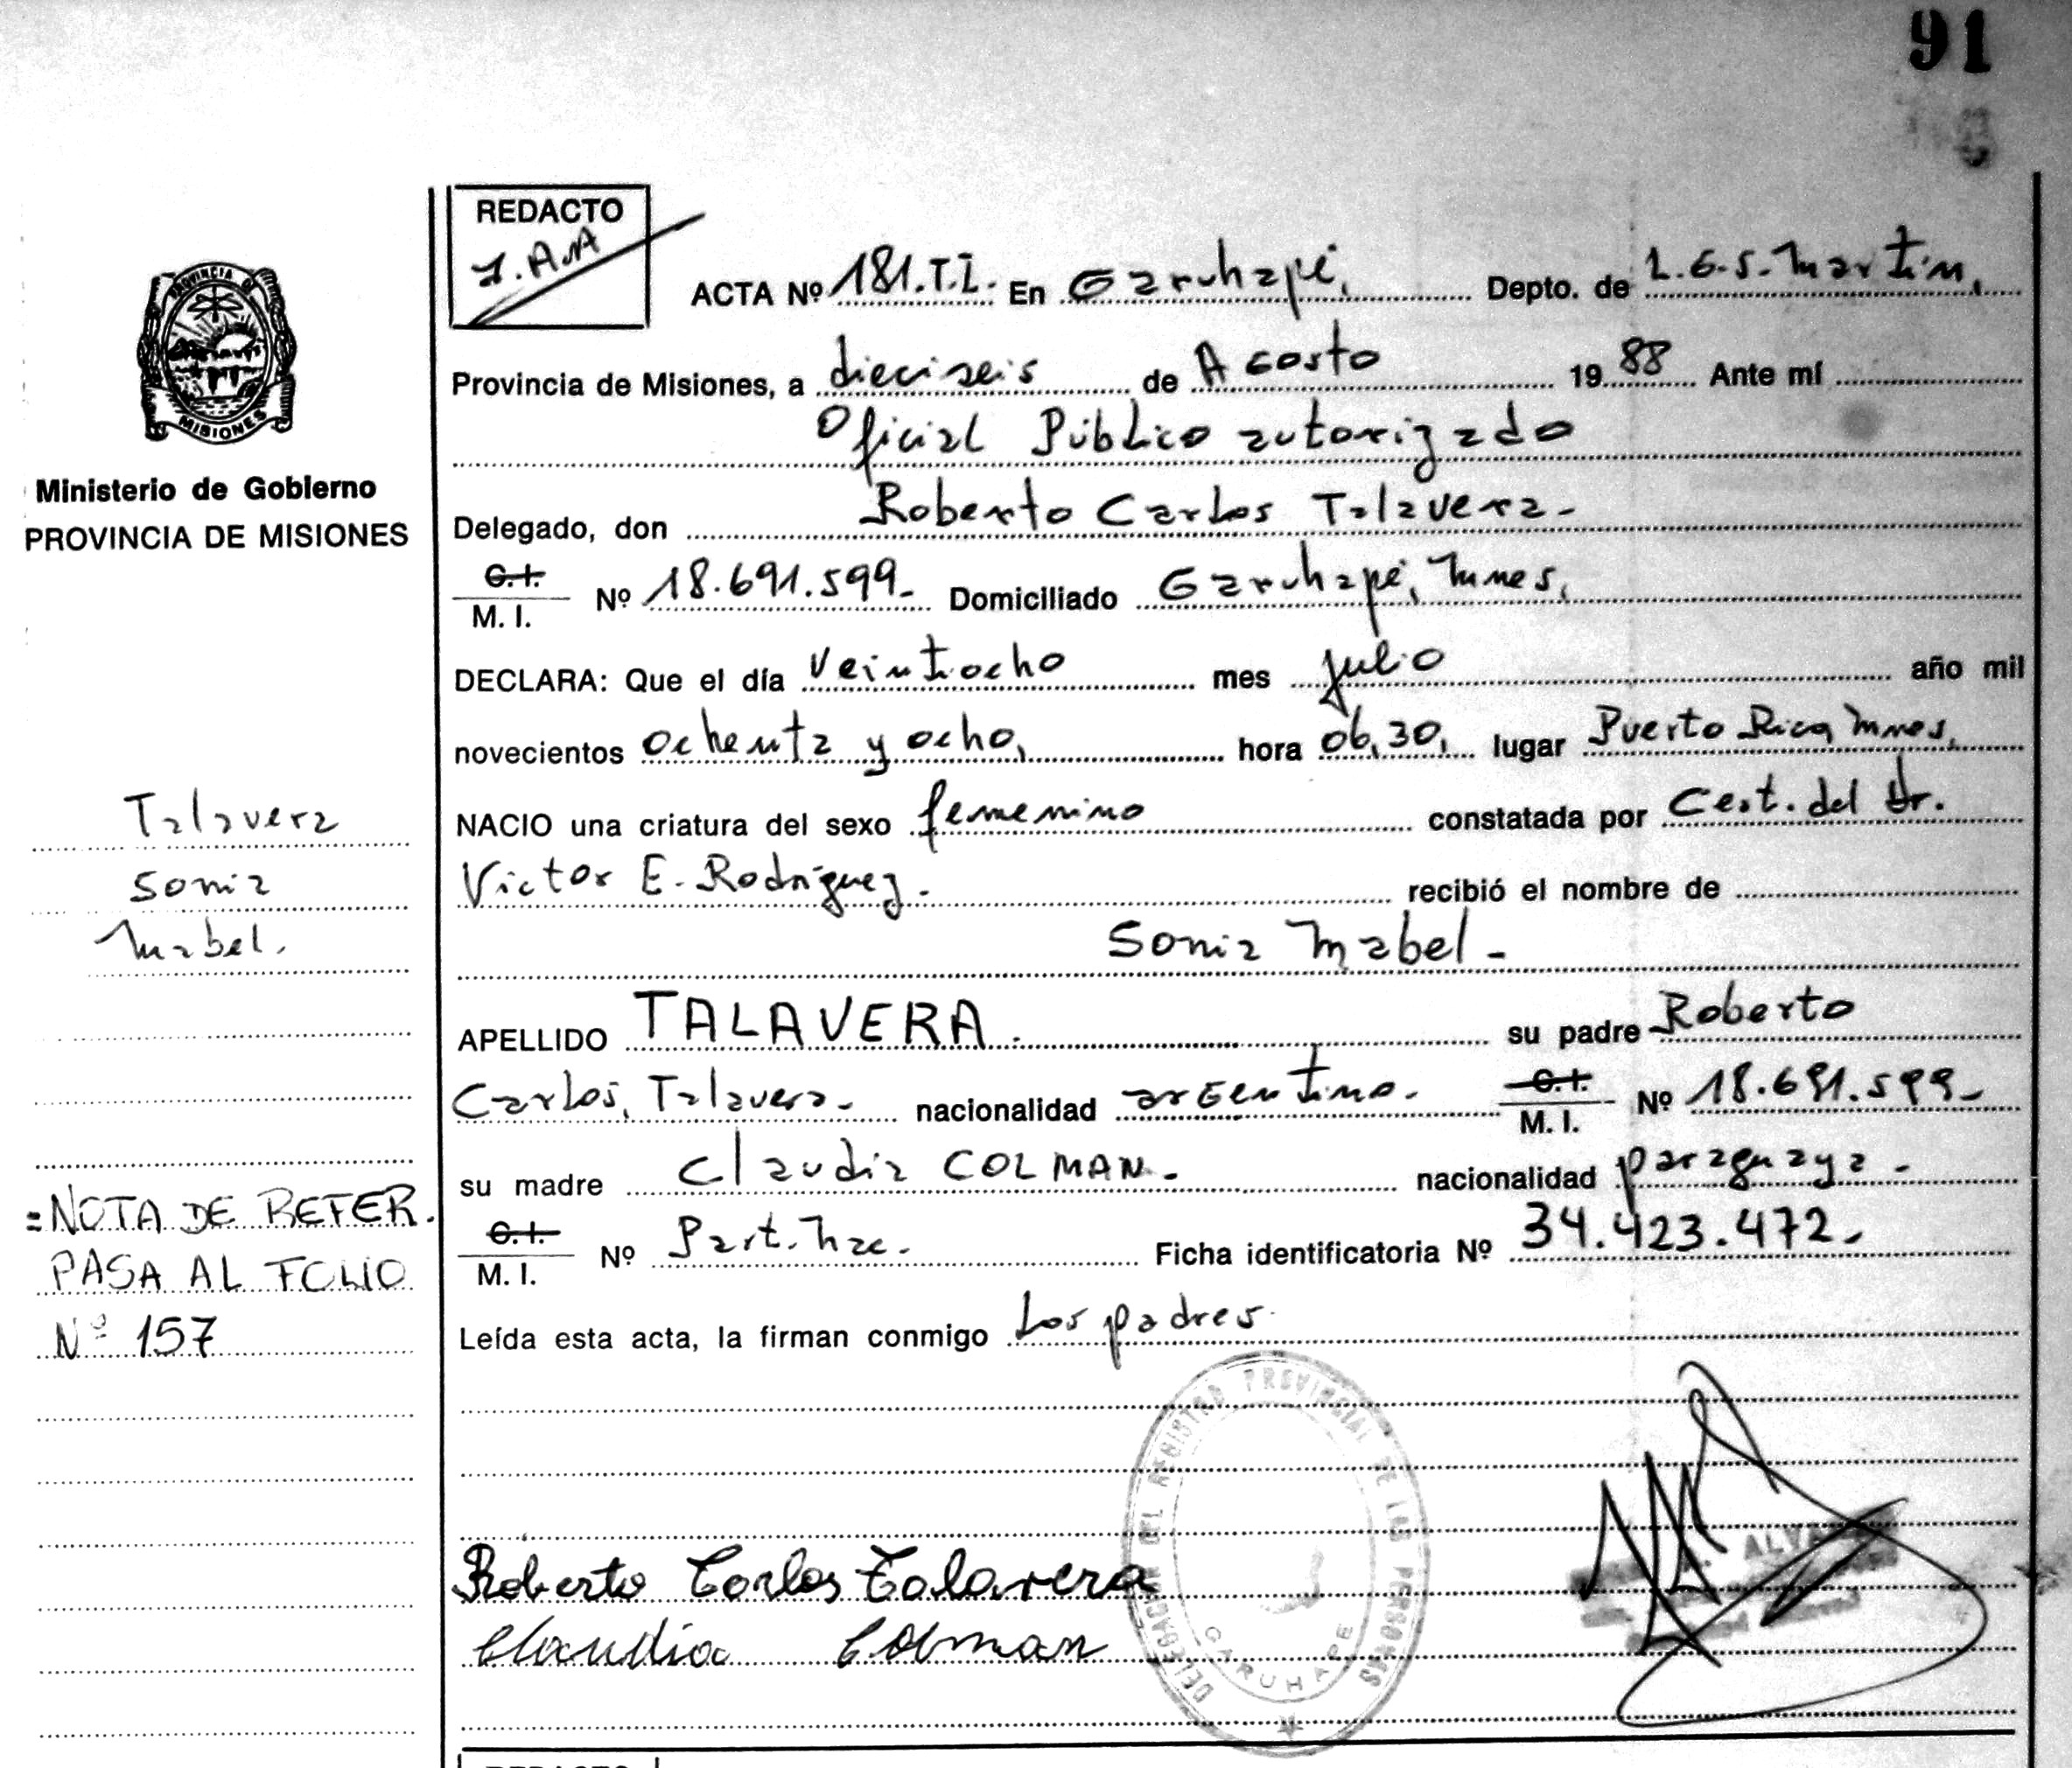 91
REDACTO
J.A.A
PROVINCIA DE
MISIONES
ACTA Nº 181.T.I. En Garuhapé, Depto. de L.G.S. Martín,
Provincia de Misiones, a dieciseis de Agosto 1988 Ante mí
Oficial Público autorizado
Ministerio de Gobierno
PROVINCIA DE MISIONES
Delegado, don Roberto Carlos Talavera.-
C.I.
M. I. Nº 18.691.599.- Domiciliado Garuhapé, Mnes,
DECLARA: Que el día Veintiocho mes julio año mil
novecientos ochenta y ocho, hora 06,30, lugar Puerto Rico, Mnes,
NACIO una criatura del sexo femenino constatada por Cert. del Dr.
Victor E. Rodríguez. recibió el nombre de
Sonia Mabel.-
Talavera
Sonia
Mabel.
APELLIDO TALAVERA. su padre Roberto
Carlos, Talavera.- nacionalidad argentino. C.I.
M. I. Nº 18.691.599.-
su madre Claudia COLMAN.- nacionalidad paraguaya.-
C.I.
M. I. Nº Part. Nac. Ficha identificatoria Nº 34.423.472.-
Leída esta acta, la firman conmigo Los padres.
=NOTA DE REFER.
PASA AL FOLIO
Nº 157
DELEGACION DEL REGISTRO PROVINCIAL DE LAS PERSONAS
GARUHAPE
Roberto Carlos Talavera
Claudia Colman
REDACTO